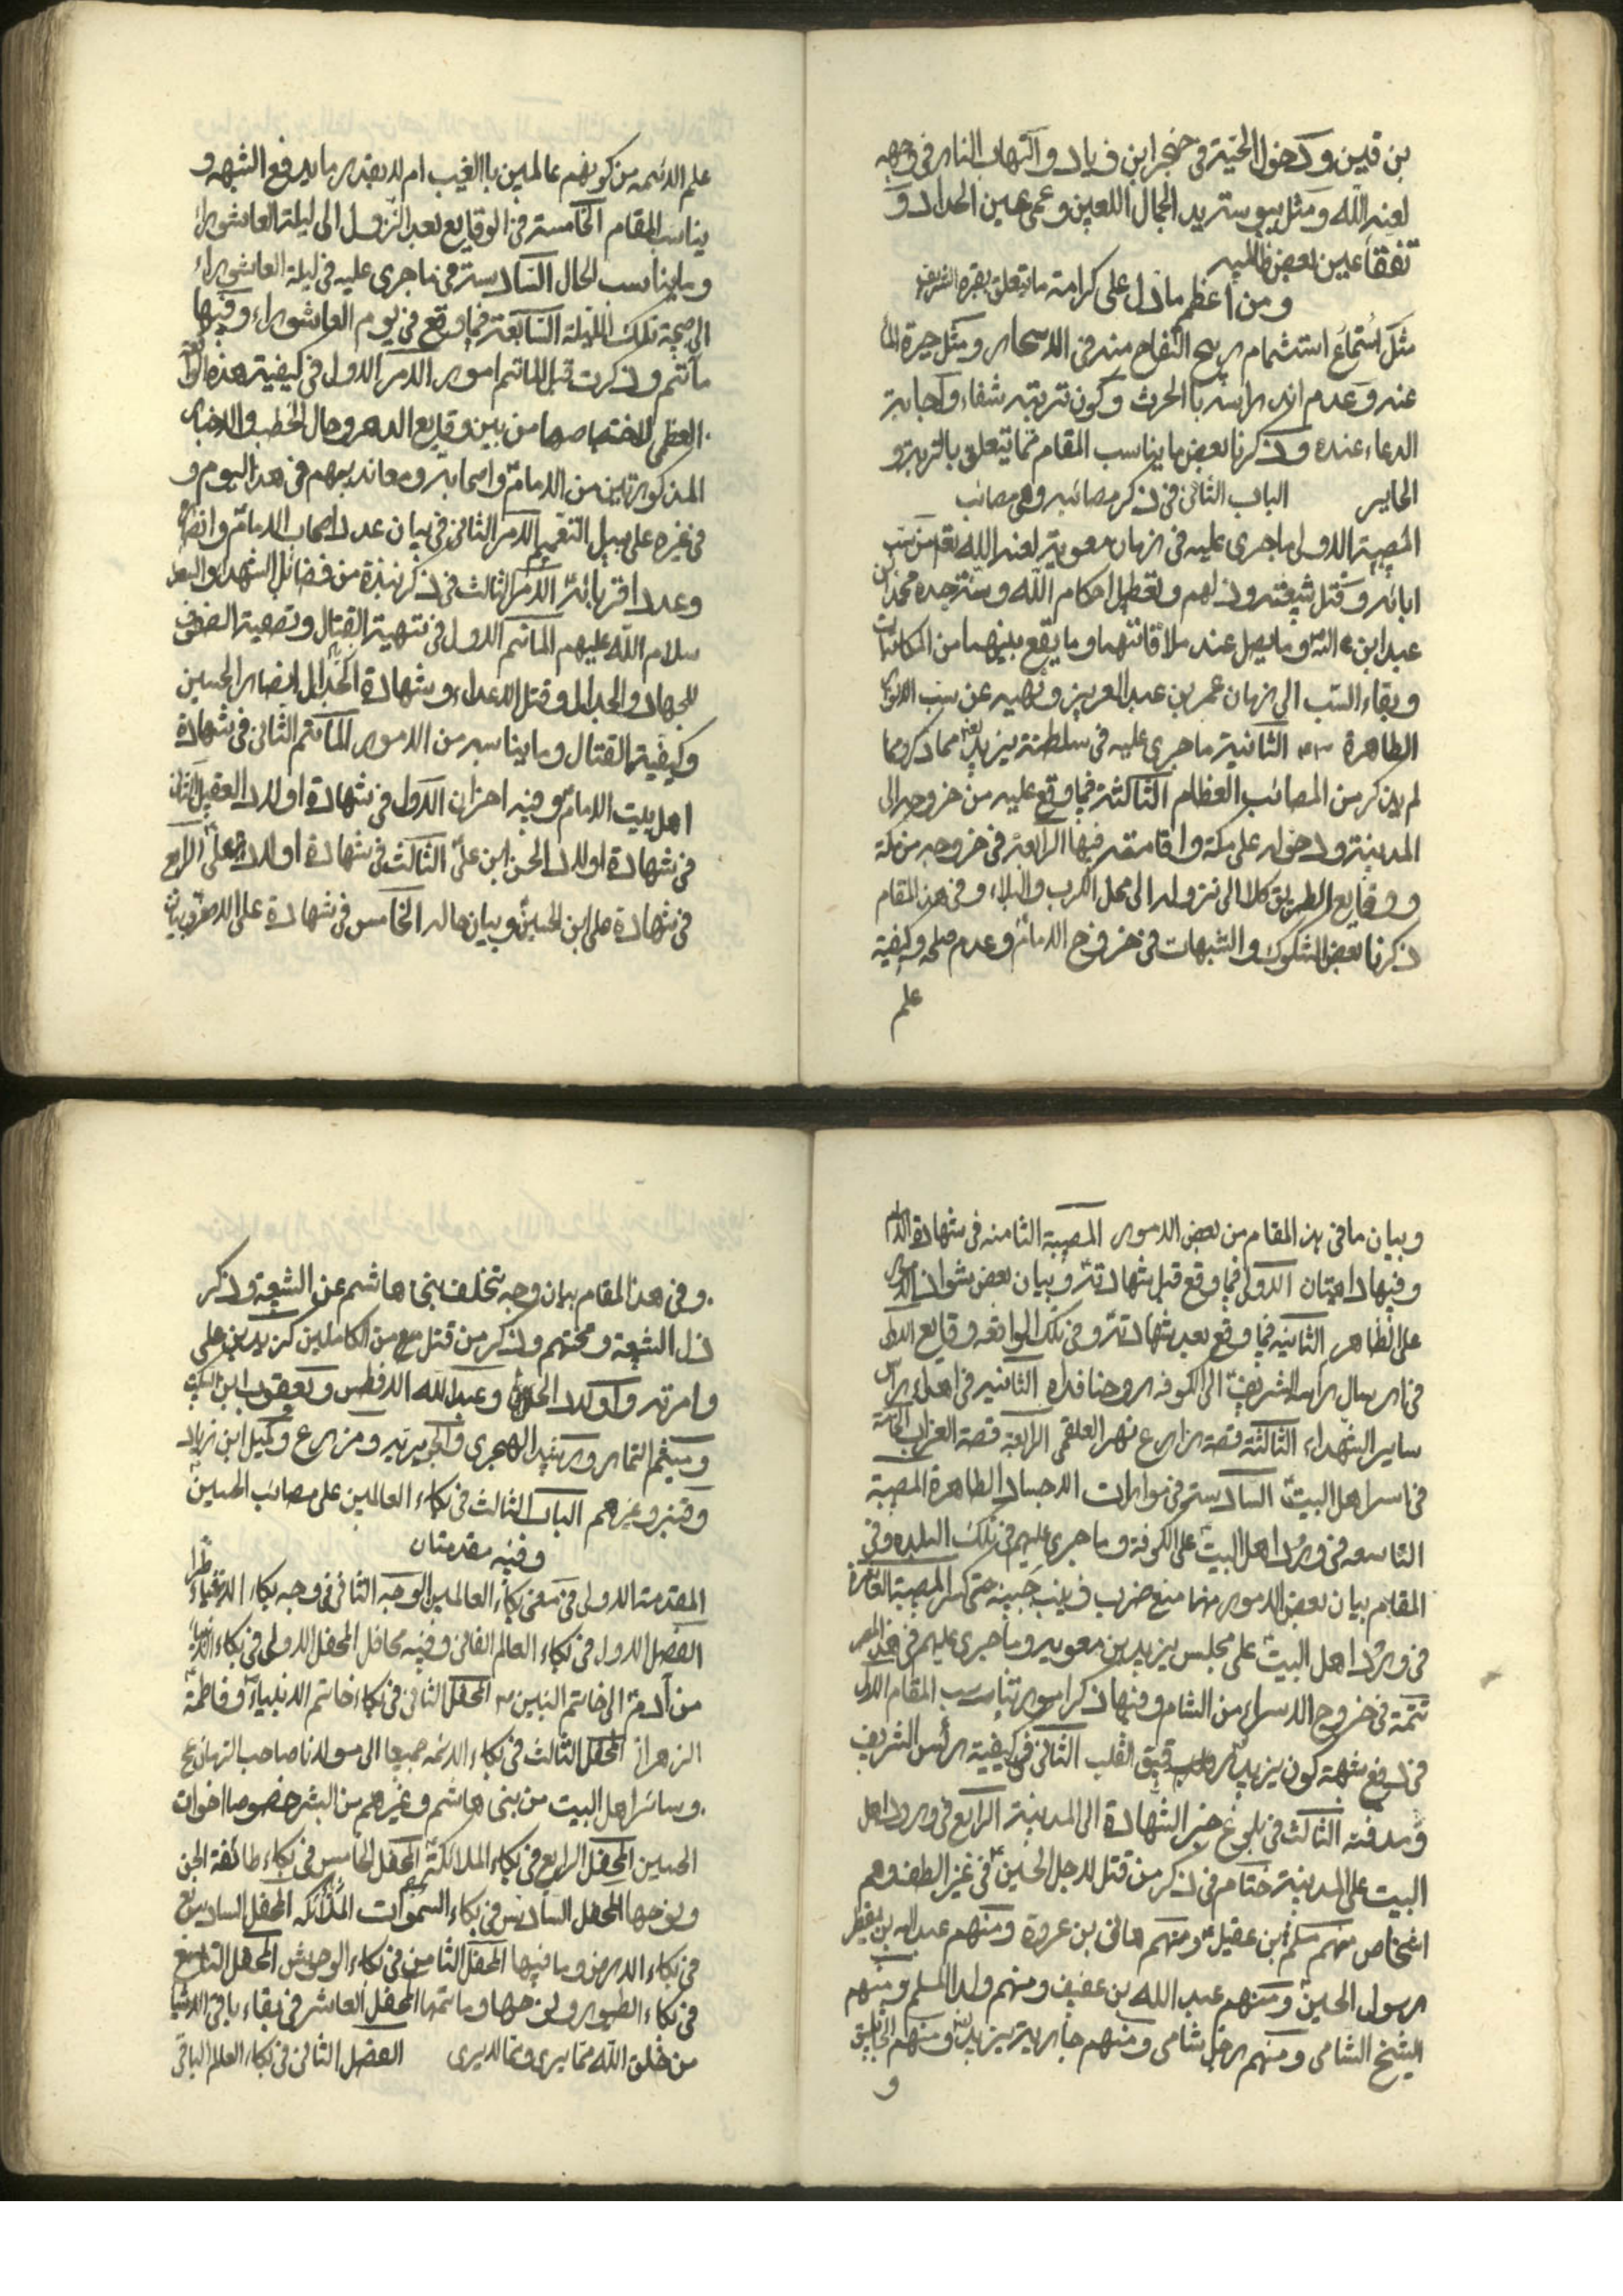 بن قيس و دخول الحية في حنجر ابن زياد و التهاب النار في وجهه
لعنه الله و مثل يبوسة يد الجمال اللعين و عمى عين الحداد و
تفقأ عين بعض ظالميه
و من اعظم ما دل على كرامة ما يتعلق بقبره الشريف
مثل استماع استشمام ريح التفاح منه في الاسحار و مثل حيرة الماء
عنه و عدم اندراسه بالحرث و كون تربته شفاء و اجابة
الدعاء عنده و ذكرنا بعض ما يناسب المقام مما يتعلق بالتربة و
الحاير الباب الثاني في ذكر مصائبه و هي مصائب
المصيبة الاولى ما جرى عليه في زمان معوية لعنه الله من سب
ابائه و قتل شيعته و ذلهم و تعطيل احكام الله و سنة جده محمد بن
عبد الله و ما يصل عند ملاقاتهما و ما يقع بينهما من المكاتبات
و بقاء السب الى زمان عمر بن عبد العزيز و نهيه عن سب
الطاهرة الثانية ما جرى عليه في سلطنة يزيد مما ذكر و مما
لم يذكر من المصائب العظام الثالثة فيما وقع عليه من خروجه الى
المدينة و دخوله على مكة و اقامته فيها الرابعة في خروجه من مكة
و وقايع الطريق كلا الى نزوله الى محل الكرب و البلاء و في هذ المقام
ذكرنا بعض الشكوك و الشبهات في خروج الامام و عدم صلحه و كيفية
علم
علم الائمه من كونهم عالمين باالغيب ام لا بقدر ما يدفع الشبهه و
يناسب المقام الخامسة في الوقايع بعد النزول الى ليلة العاشوراء
و ما يناسب الحال السادسة في ما جرى عليه في ليلة العاشوراء
الى صبحة تلك الليلة السابعة فيما وقع في يوم العاشوراء و فيها
مآتم و ذكرت قبل الماتم امور الامر الاول في كيفية هذه
العظمى لاختصاصها من بين وقايع الدهر و حال الخطب و الاخبار
المذكورتين من الامام و اصحابه و معانديهم في هذا اليوم و
في غيره على سبيل التعميم الامر الثاني في بيان عدد اصحاب الامام و انصاره
و عدد اقربائه الامر الثالث في ذكر نبذة من فضائل الشهداء
سلام الله عليهم الماتم الاول في تهيئة القتال و تصفية الصفوف
للجهاد و الجدال و قتل الاعداء و شهادة انصار الحسين
و كيفية القتال و ما يناسبه من الامور المأتم الثاني في شهادة
اهل بيت الامام و فيه احزان الاول في شهادة اولاد العقيل الثاني
في شهادة اولاد الحسن ابن علي الثالث في شهادة اولاد علي الرابع
في شهادة علي ابن الحسين و بيان حاله الخامس في شهادة علي الاصغر و بيان
و بيان ما في هذ المقام من بعض الامور المصيبة الثامنه في شهادة الامام
و فيها الاولى فيما وقع قبل شهادته و بيان بعض
على الظاهر الثانيه فيما وقع بعد شهادته و في تلك الواقعه وقايع الاولى
في ارسال راسه الشريف الى الكوفه روحنا فداه الثانيه في اهداء رؤس
ساير الشهداء الثالثة قصة زارع نهر العلقمي الرابعة قصة الغراب الخامسة
في اسر اهل البيت السادسة في موارات الاجساد الطاهرة المصيبة
التاسعه في ورود اهل البيت على الكوفة و ما جرى عليهم في تلك البلده و في
المقام بيان بعض الامور منها منع ضرب زينب جبينه حتى كسر المصيبة العاشرة
في ورود اهل البيت على مجلس يزيد بن معويه و ما جرى عليهم في هذا
تتمة في خروج الاسراء من الشام و فيها ذكر امور تناسب المقام الاول
في دفع شبهة كون يزيد رقيق القلب الثاني في كيفية رأس الشريف
و مدفنه الثالث في بلوغ خبر الشهادة الى المدينة الرابع في ورود اهل
البيت على المدينة ختام في ذكر من قتل لاجل الحسين في غير الطف و هم
اشخاص منهم مسلم بن عقيل و منهم هاني بن عروة و منهم عبد الله بن يقطر
رسول الحسين و منهم عبد الله بن عفيف و منهم ولدا المسلم و منهم
الشيخ الشامي و منهم رجل شامي و منهم جارية يزيد و منهم الجاثليق
و
و في هذا المقام بيان وجه تخلف بني هاشم عن الشيعة و ذكر
ذل الشيعة و محنتهم و ذكر من قتل مع من الكاملين كزيد بن علي
و امرته و اولاد الحسن و عبد الله الافطس و يعقوب ابن السكيت
و ميثم التمار و رشيد الهجري و الجويريه و مزرع و كميل ابن زياد
و قنبر و غيرهم الباب الثالث في بكاء العالمين على مصائب الحسين
و فيه مقدمتان
المقدمة الاولى في معنى بكاء العالمين الوجه الثاني في وجه بكاء الاشياء طرا
الفصل الاول في بكاء العالم الفاني و فيه محافل المحفل الاولى في بكاء الانبياء
من آدم الى خاتم النبيين المحفل الثاني في بكاء خاتم الانبياء و فاطمة
الزهرا المحفل الثالث في بكاء الائمه جميعا الى مولانا صاحب الزمان عج
و سائر اهل البيت من بني هاشم و غيرهم من البشر خصوصا اخوات
الحسين المحفل الرابع في بكاء الملائكة المحفل الخامس في بكاء طائفة الجن
و نوحها المحفل السادس في بكاء السموات المحفل السابع
في بكاء الارض و ما فيها المحفل الثامن في بكاء الوحوش المحفل التاسع
في بكاء الطيور و نوحها و ماتمها المحفل العاشر في بقاء باقي الاشيا
من خلق الله مما يرى و مما لايرى الفصل الثاني في بكاء العالم الباقي